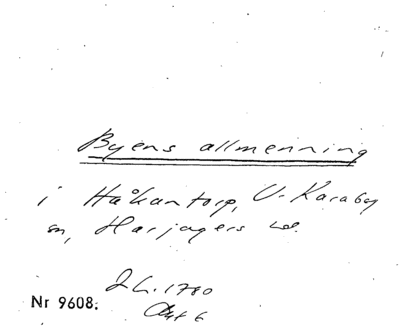 Byens allmenning
i Håkantorp, V. Karaby
sn, Harjagers hd.
Nr 9608: